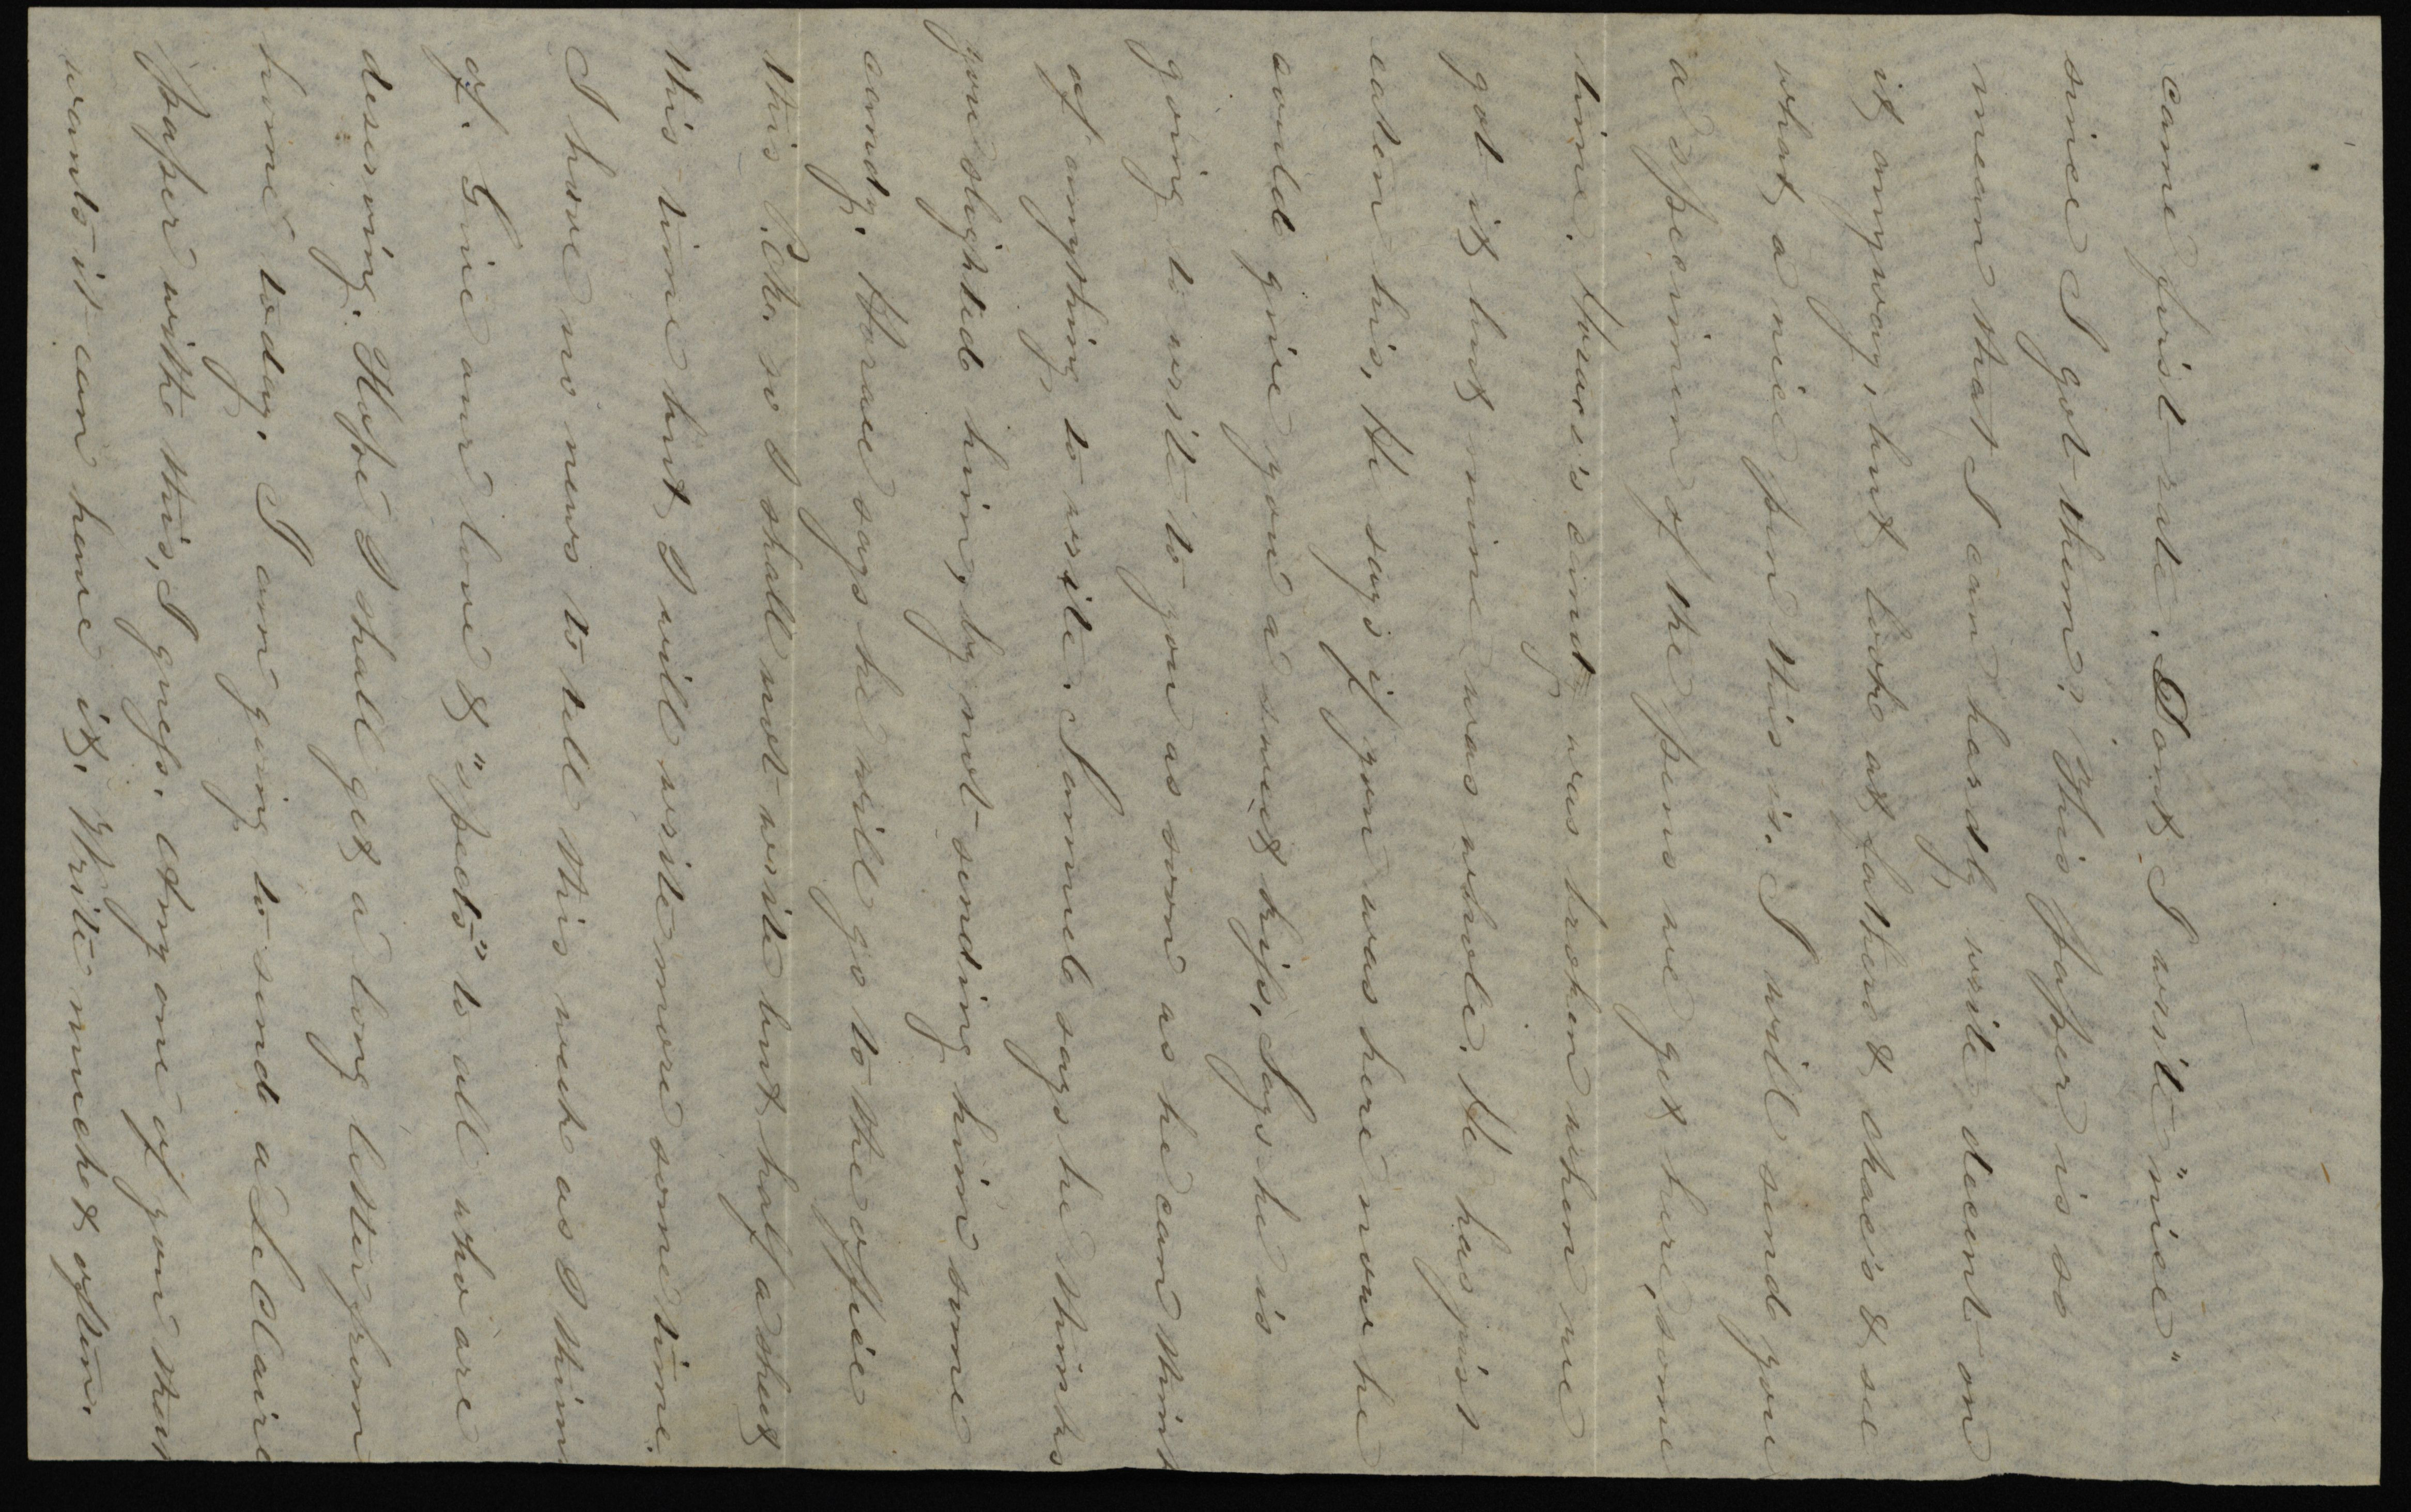 came first rate. Dont I write "nice"
since I got them? This paper is so
mean that I can hardly write decent on
it anyway, but look at fathers & chac's & see
what a nice pen this is. I will send you
a specimen of the pens we get here, some
time. Horace's candy was broken when we
got it but mine was whole. He has just
eaten his, He says if you was here now he
would give you a sweet kiss, Says he is
going to write to you as soon as he can think
of anything to write. Samuel says he thinks
you slighted him, by not sending him some
candy. Horace says he will go to the office
this P.M. so I shall not write but half a sheet
this time but I will write more some time.
I have no news to tell this week as I think
of. Give our love & "spects" to all who are
deserving. Hope I shall get a long letter from
home today. I am going to send a LeClaire
paper with this, I guess. Any one of you that
wants it can have it. Write much & often.